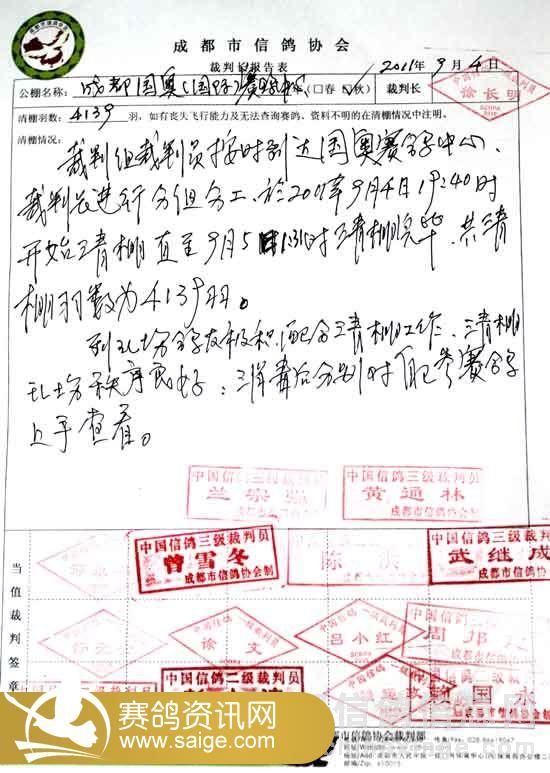 成都市信鸽协会
裁判长报告表
2011年9月4日
公棚名称：成都国奥(国际)赛鸽中心 (□春 □秋) 裁判长 徐长明
清棚羽数：4139 羽，如有丧失飞行能力及无法查询赛鸽、资料不明的在清棚情况中注明。
清棚情况：
裁判组裁判员按时到达国奥赛鸽中心、
裁判长进行分组分工、於2011年9月4日19:40时
开始清棚直至9月5日1:31时清棚完毕、共清
棚羽数为4139羽。
到现场鸽友极积配合清棚工作、清棚
现场秩序良好；消毒后分别对自己参赛鸽
上手查看。
中国信鸽三级裁判员
中国信鸽三级裁判员
兰宗
黄通林
成都市信鸽协会制
当值裁判签章
中国信鸽三级裁判员
曾雪冬
成都市信鸽协会制
陈
中国信鸽三级裁判员
武继成
成都市信鸽协会
徐文
吕小红
周邦
中国信鸽二级裁判员
国永
赛鸽资讯网
www.saige.com
成都市信鸽协会裁判部